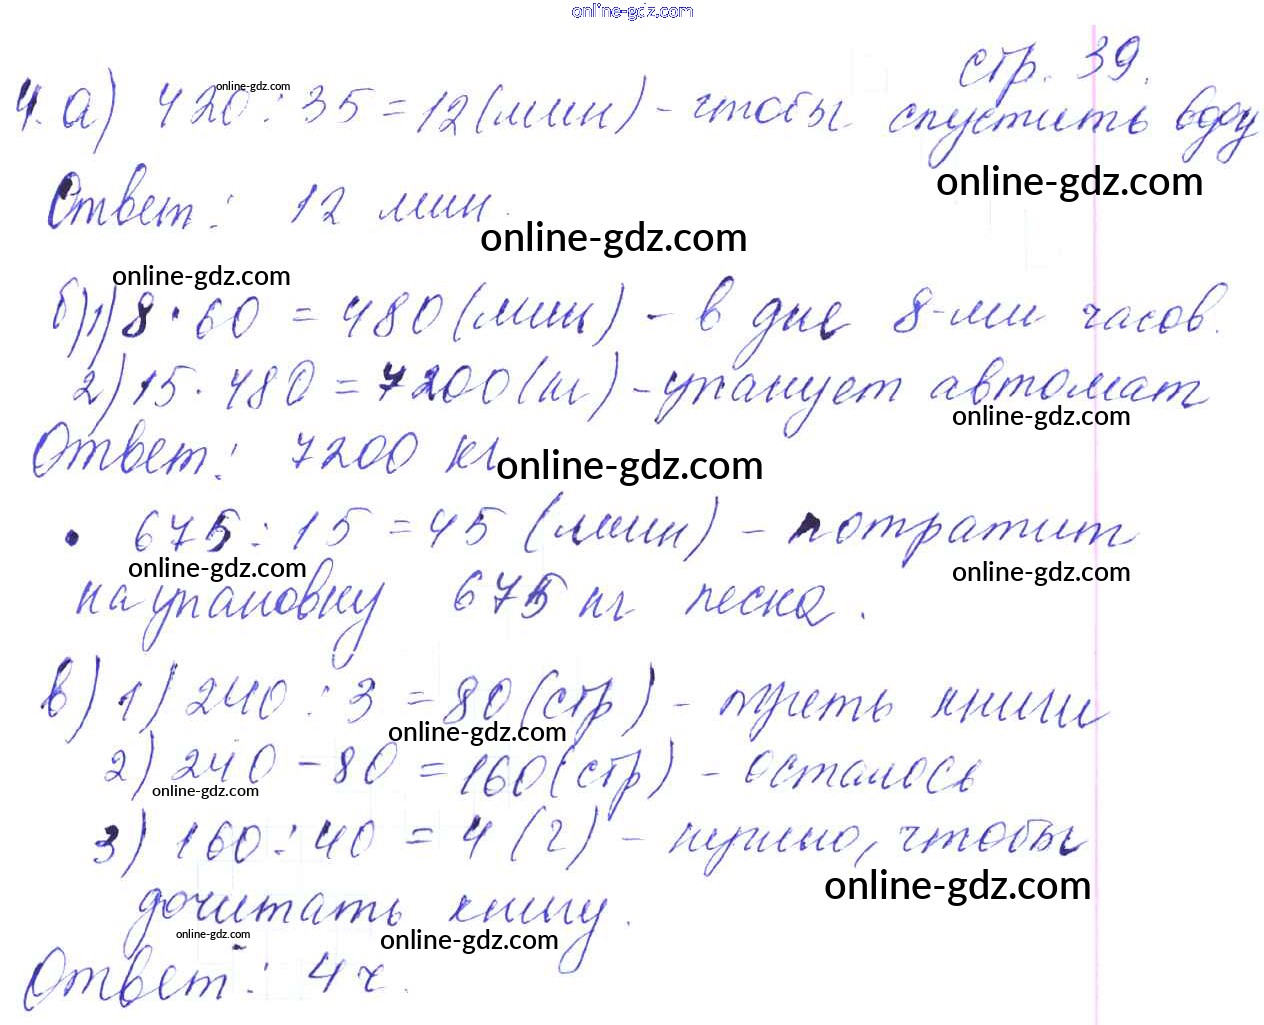 online-gdz.com
стр. 39.
online-gdz.com
4. а) 420 : 35 = 12 (мин) - чтобы спустить воду
online-gdz.com
Ответ: 12 мин.
online-gdz.com
online-gdz.com
б) 1) 8 · 60 = 480 (мин) - в дне 8-ми часов.
2) 15 · 480 = 7200 (кг) - упакует автомат
online-gdz.com
Ответ: 7200 кг
online-gdz.com
• 675 : 15 = 45 (мин) - потратит
online-gdz.com
online-gdz.com
на упаковку 675 кг песка.
в) 1) 240 : 3 = 80 (стр) - треть книги
online-gdz.com
2) 240 - 80 = 160 (стр) - осталось
online-gdz.com
3) 160 : 40 = 4 (г) - нужно, чтобы
online-gdz.com
дочитать книгу.
online-gdz.com
online-gdz.com
Ответ: 4 ч.